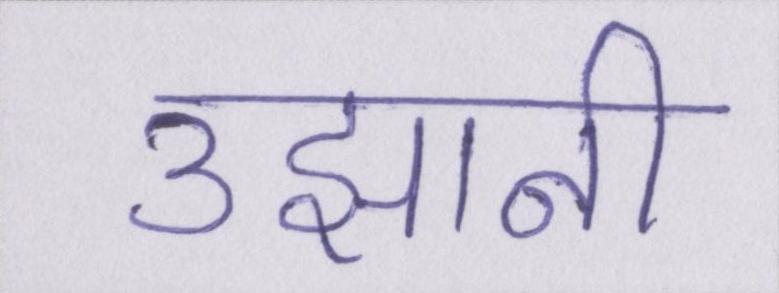 उझानी